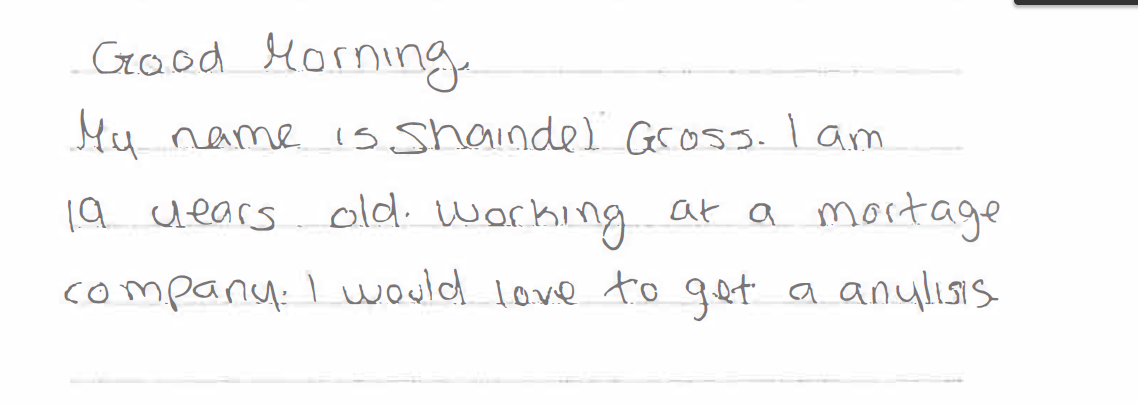 Good Morning,
My name is Shaindel Gross. I am
19 years old. working at a mortage
company. I would love to get a anylisis